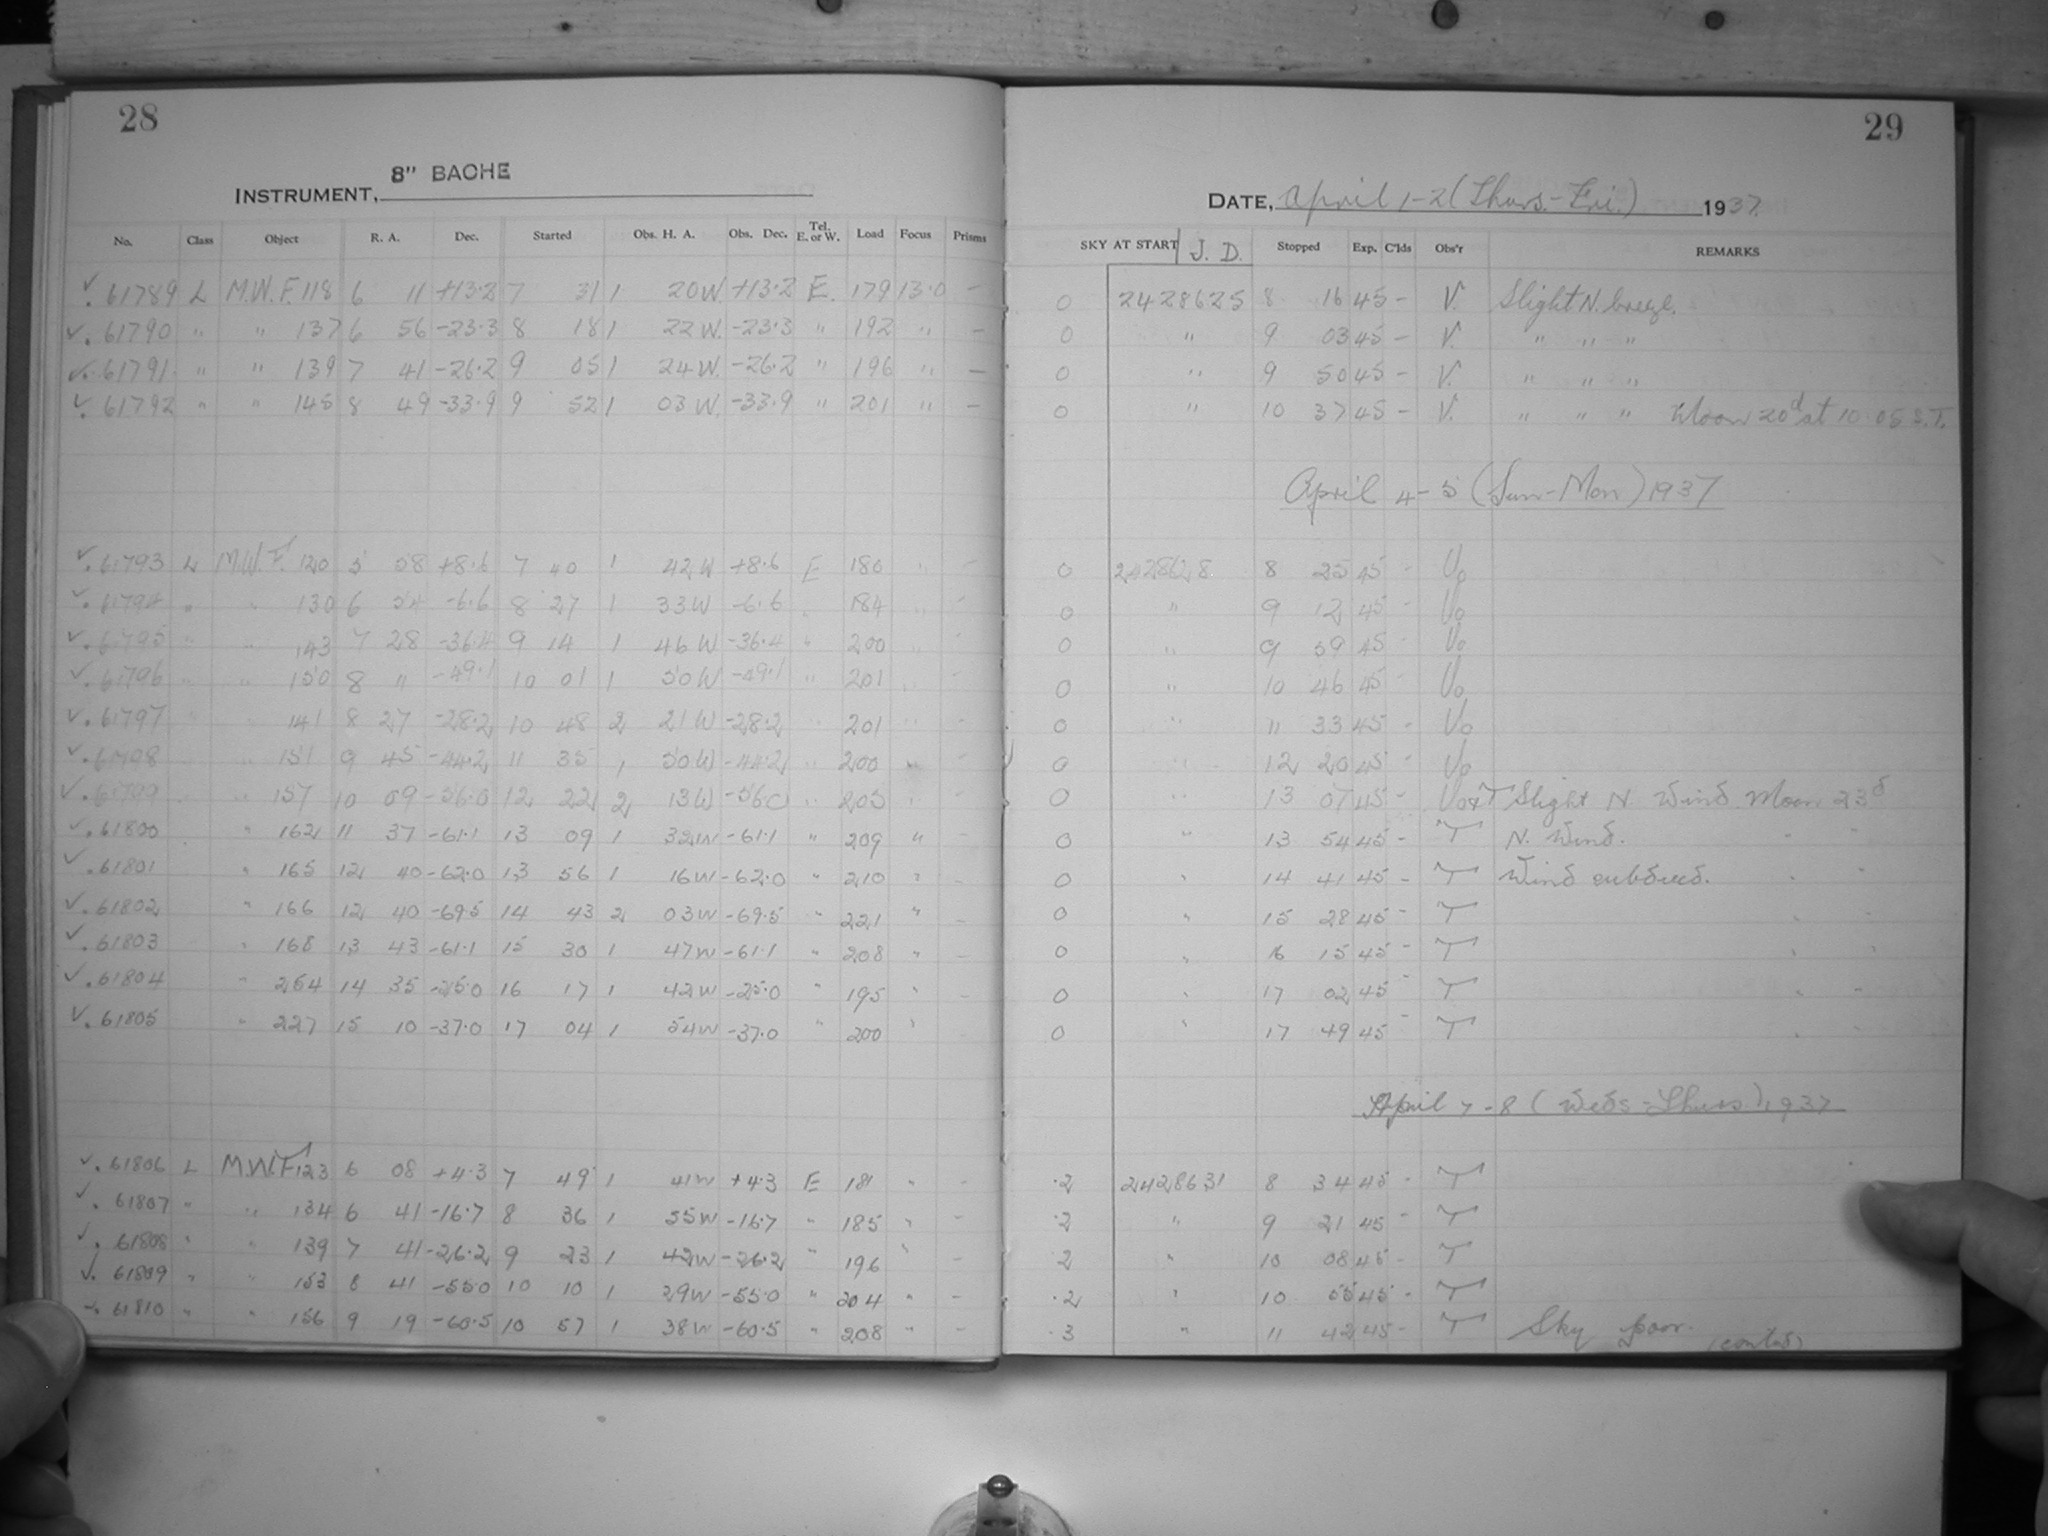 28
8" BACHE
INSTRUMENT,
No. Class Object R. A. Dec. Started Obs. H. A. Obs. Dec. Tel. E. or W. Load Focus Prisms
✓. 61789 L M.W.F. 118 6 11 +13.2 7 31 1 20W +13.2 E. 179 13.0 –
✓. 61790 " " 137 6 56 -23.3 8 18 1 22 W. -23.3 " 192 " –
✓. 61791 " " 139 7 41 -26.2 9 05 1 24 W. -26.2 " 196 " –
✓. 61792 " " 145 8 49 -33.9 9 52 1 03 W. -33.9 " 201 " –
✓. 61793 L M.W.F. 120 5 58 +8.6 7 40 1 42 W +8.6 E 180 " –
✓. 61794 " " 130 6 54 -6.6 8 27 1 33W -6.6 " 184 " –
✓. 61795 " " 143 7 28 -36.4 9 14 1 46 W -36.4 " 200 " –
✓. 61796 " " 150 8 " -49.1 10 01 1 50W -49.1 " 201 " –
✓. 61797 " " 141 8 27 -28.2 10 48 2 21W -28.2 " 201 " –
✓. 61798 " 151 9 45 -44.2 11 35 1 50W -44.2 " 200 " –
✓. 61799 " 157 10 09 -56.0 12 22 2 13W -56.0 " 205 " –
✓. 61800 " 162 11 37 -61.1 13 09 1 32W -61.1 " 209 " –
✓. 61801 " 165 12 40 -62.0 13 56 1 16W -62.0 " 210 " –
✓. 61802 " 166 12 40 -69.5 14 43 2 03W -69.5 " 221 " –
✓. 61803 " 168 13 43 -61.1 15 30 1 47W -61.1 " 208 " –
✓. 61804 " 254 14 35 -25.0 16 17 1 42W -25.0 " 195 " –
✓. 61805 " 227 15 10 -37.0 17 04 1 54W -37.0 " 200 "
✓. 61806 L M.W.F. 123 6 08 +4.3 7 49 1 41W +4.3 E 181 " –
✓. 61807 " " 134 6 41 -16.7 8 36 1 55W -16.7 " 185 " –
✓. 61808 " " 139 7 41 -26.2 9 23 1 42W -26.2 " 196 " –
✓. 61809 " " 153 8 41 -55.0 10 10 1 29W -55.0 " 204 " –
✓. 61810 " " 156 9 19 -60.5 10 57 1 38W -60.5 " 208 " –
29
DATE, April 1-2 (Thurs.-Fri.) 1937
SKY AT START J. D. Stopped Exp. C'lds Obs'r REMARKS
0 2428625 8 16 45 – V. Slight N. breeze.
0 " 9 03 45 – V. " " "
0 " 9 50 45 – V. " " "
0 " 10 37 45 – V. " " " Moon 20d at 10.05 S.T.
April 4-5 (Sun-Mon) 1937
0 2428628 8 25 45 - Vo
0 " 9 12 45 - Vo
0 " 9 59 45 Vo
0 " 10 46 45 - Vo
0 " 11 33 45 - Vo
0 " 12 20 45 - Vo
0 " 13 07 45 - Vo+T Slight N Wind Moon 23d
0 " 13 54 45 - T N. Wind.
0 " 14 41 45 - T Wind subdued.
0 " 15 28 45 - T
0 " 16 15 45 - T
0 " 17 02 45 - T
0 " 17 49 45 - T
April 7-8 (Weds-Thurs.) 1937
.2 2428631 8 34 45 - T
.2 " 9 21 45 - T
.2 " 10 08 45 - T
.2 " 10 55 45 - T
.3 " 11 42 45 - T Sky poor.
(contd)